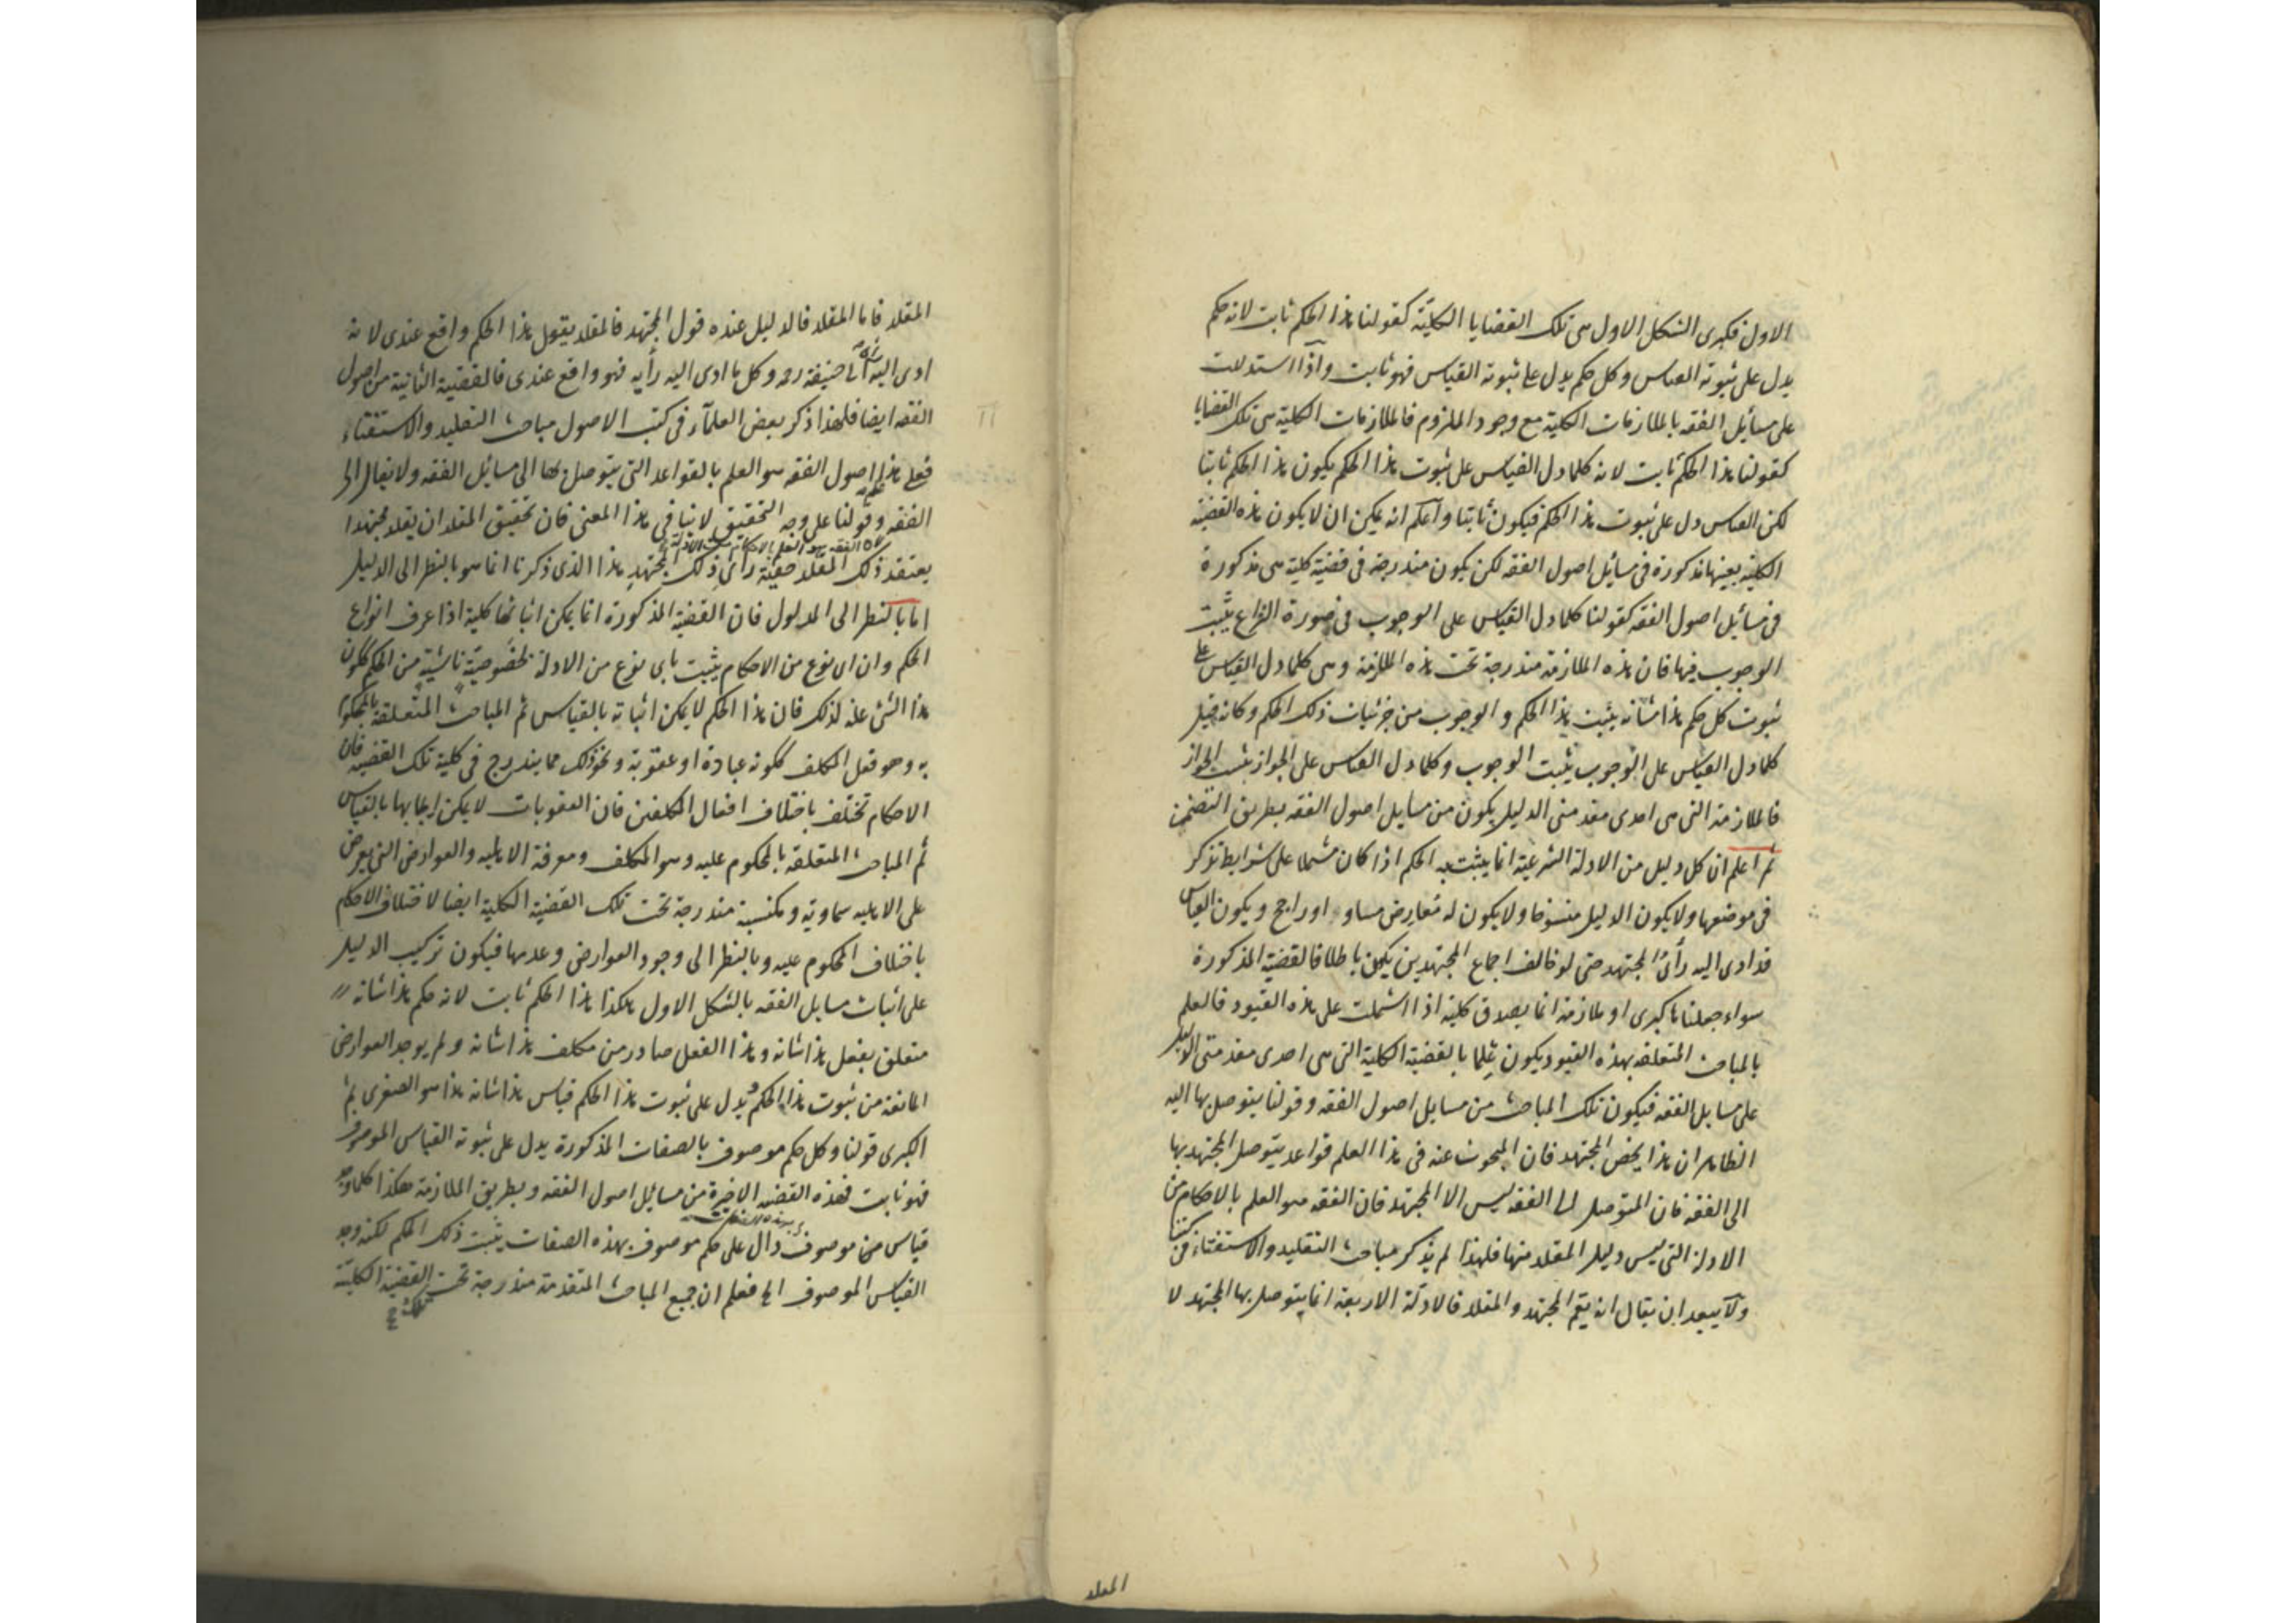 الاول فكبرى الشكل الاول هى تلك القضايا الكلية كقولنا هذا الحكم ثابت لانه حكم
يدل على ثبوته القياس وكل حكم يدل على ثبوته القياس فهو ثابت واذا استدللت
على مسائل الفقه بالملازمات الكلية مع وجود الملزوم فالملازمات الكلية هى تلك القضايا
كقولنا هذا الحكم ثابت لانه كلما دل القياس على ثبوت هذا الحكم يكون هذا الحكم ثابتا
لكن القياس دل على ثبوت هذا الحكم فيكون ثابتا واعلم انه يمكن ان لا يكون هذه القضية
الكلية بعينها مذكورة فى مسائل اصول الفقه لكن يكون مندرجة فى قضية كلية هى مذكورة
فى مسائل اصول الفقه كقولنا كلما دل القياس على الوجوب فى صورة النزاع يثبت
الوجوب فيها فان هذه الملازمة مندرجة تحت هذه الملازمة وهى كلما دل القياس على
ثبوت كل حكم هذا شانه يثبت هذا الحكم والوجوب من جزئيات ذلك الحكم وكانه قيل
كلما دل القياس على الوجوب يثبت الوجوب وكلما دل القياس على الجواز يثبت الجواز
فالملازمة التى هى احدى مقدمتى الدليل يكون من مسايل اصول الفقه بطريق التضمن
ثم اعلم ان كل دليل من الادلة الشرعية انما يثبت به الحكم اذا كان مشتملا على شرايط تذكر
فى موضعها ولا يكون الدليل منسوخا ولا يكون له معارض مساو او راجح ويكون القياس
قد ادى اليه رأى المجتهد حتى لو خالف اجماع المجتهدين يكون باطلا فالقضية المذكورة
سواء جعلناها كبرى او ملازمة انما يصدق كلية اذا اشتملت على هذه القيود فالعلم
بالمباحث المتعلقة بهذه القيود يكون علما بالقضية الكلية التى هى احدى مقدمتى الدليل
على مسايل الفقه فيكون تلك المباحث من مسايل اصول الفقه وقولنا يتوصل بها اليه
الظاهر ان هذا يخص المجتهد فان المبحوث عنه فى هذا العلم قواعد يتوصل المجتهد بها
الى الفقه فان المتوصل الى الفقه ليس الا المجتهد فان الفقه هو العلم بالاحكام من
الادلة التى ليس دليل المقلد منها فلهذا لم يذكر مباحث التقليد والاستفتاء فى كتبنا
ولا يبعد ان يقال انه يعم المجتهد والمقلد فالادلة الاربعة انما يتوصل بها المجتهد لا
المقلد
المقلد فاما المقلد فالدليل عنده قول المجتهد فالمقلد يقول هذا الحكم واقع عندى لانه
ادى اليه رأى ابى حنيفة رحمه وكل ما ادى اليه رأيه فهو واقع عندى فالقضية الثانية من اصول
الفقه ايضا فلهذا ذكر بعض العلمآء فى كتب الاصول مباحث التقليد والاستفتاء
فعلى هذا اصول الفقه هو العلم بالقواعد التى يتوصل بها الى مسائل الفقه ولا يقال الى
الفقه وقولنا على وجه التحقيق لا ينافى هذا المعنى فان تحقيق المقلد ان يقلد مجتهدا
يعتقد ذلك المقلد حقية رأى ذلك المجتهد هذا الذى ذكرنا انما هو بالنظر الى الدليل
اما بالنظر الى المدلول فان القضية المذكورة انما يمكن اثباتها كلية اذا عرف انواع
الحكم وان اى نوع من الاحكام يثبت باى نوع من الادلة لخصوصية ناشية من الحكم ككون
هذا الشئ علة لذلك فان هذا الحكم لا يمكن اثباته بالقياس ثم المباحث المتعلقة بالمحكوم
به وهو فعل المكلف ككونه عبادة او عقوبة ونحو ذلك مما يندرج فى كلية تلك القضية فان
الاحكام تختلف باختلاف افعال المكلفين فان العقوبات لا يمكن ايجابها بالقياس
ثم المباحث المتعلقة بالمحكوم عليه وهو المكلف ومعرفة الاهلية والعوارض التى يعرض
على الاهلية سماوية ومكتسبة مندرجة تحت تلك القضية الكلية ايضا لاختلاف الاحكام
باختلاف المحكوم عليه وبالنظر الى وجود العوارض وعدمها فيكون تركيب الدليل
على اثبات مسايل الفقه بالشكل الاول هكذا هذا الحكم ثابت لانه حكم هذا شانه
متعلق بفعل هذا شانه وهذا الفعل صادر من مكلف هذا شانه ولم يوجد العوارض
المانعة من ثبوت هذا الحكم ويدل على ثبوت هذا الحكم قياس هذا شانه هذا هو الصغرى ثم
الكبرى قولنا وكل حكم موصوف بالصفات المذكورة يدل على ثبوته القياس الموصوف
فهو ثابت فهذه القضية الاخيرة من مسائل اصول الفقه وبطريق الملازمة هكذا كلما وجد
قياس موصوف بهذه الصفات دال على حكم موصوف بهذه الصفات يثبت ذلك الحكم لكنه وجد
القياس الموصوف الخ فعلم ان جميع المباحث المتقدمة مندرجة تحت القضية الكلية